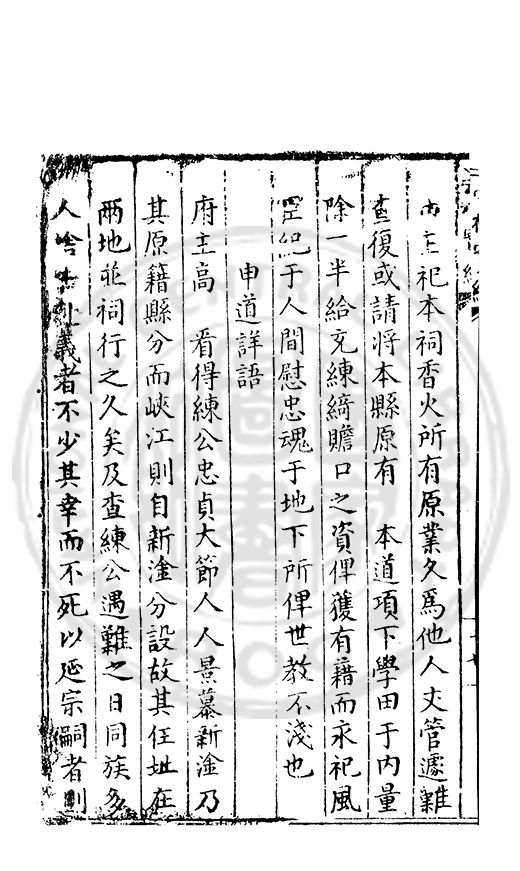 主祀本祠香火所有原業久爲他人丈管遽難
查復或請將本縣原有　本道項下學田于内量
除一半給充練綺贍口之資俾獲有藉而永祀風
罡紀于人間慰忠魂于地下所俾世教不淺也
申道詳語
府主高　看得練公忠貞大節人人景慕新淦乃
其原籍縣分而峽江則自新淦分設故其任址在
兩地並祠行之久矣及查練公遇難之日同族多
人義者不少其幸而不死以延宗嗣者則